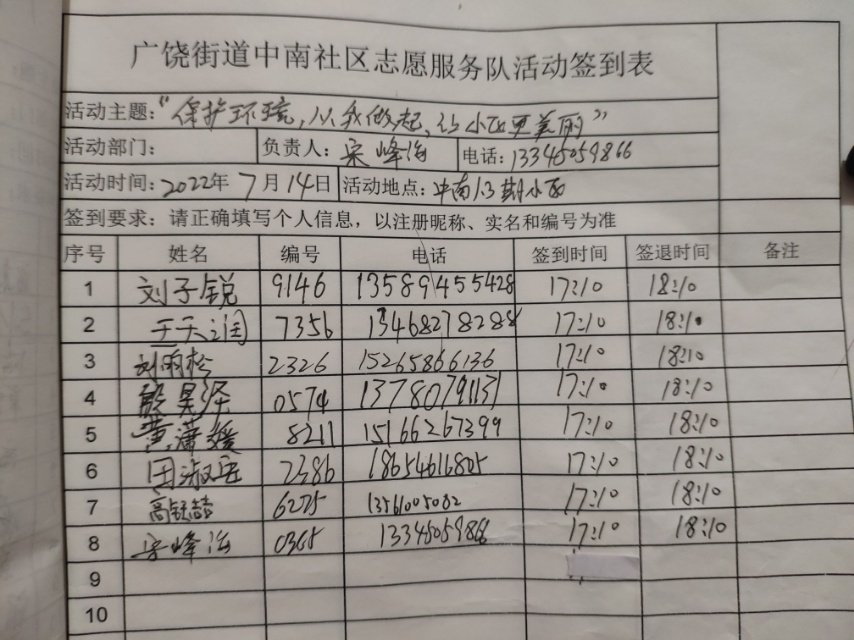 广饶街道中南社区志愿服务队活动签到表
活动主题："保护环境,从我做起,让小区更美丽"
活动部门： 负责人：宋峰海 电话：13345059866
活动时间：2022年7月14日 活动地点：中南1.3期小区
签到要求：请正确填写个人信息，以注册昵称、实名和编号为准
序号 姓名 编号 电话 签到时间 签退时间 备注
1 刘子锐 9146 13589455428 17:10 18:10
2 王天润 7356 13468278288 17:10 18:10
3 刘明松 2326 15265866136 17:10 18:10
4 殷昊泽 0574 13780791131 17:10 18:10
5 黄潇媛 8211 15166267399 17:10 18:10
6 田淑 2386 18654616805 17:10 18:10
7 高 6275 13561005082 17:10 18:10
8 宋峰海 0365 13345059866 17:10 18:10
9
10